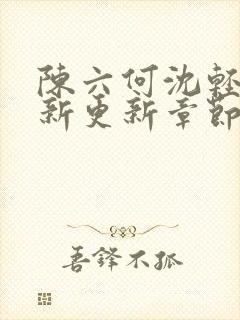 陳六何沈輕
新更新章節
吾鋒不孤